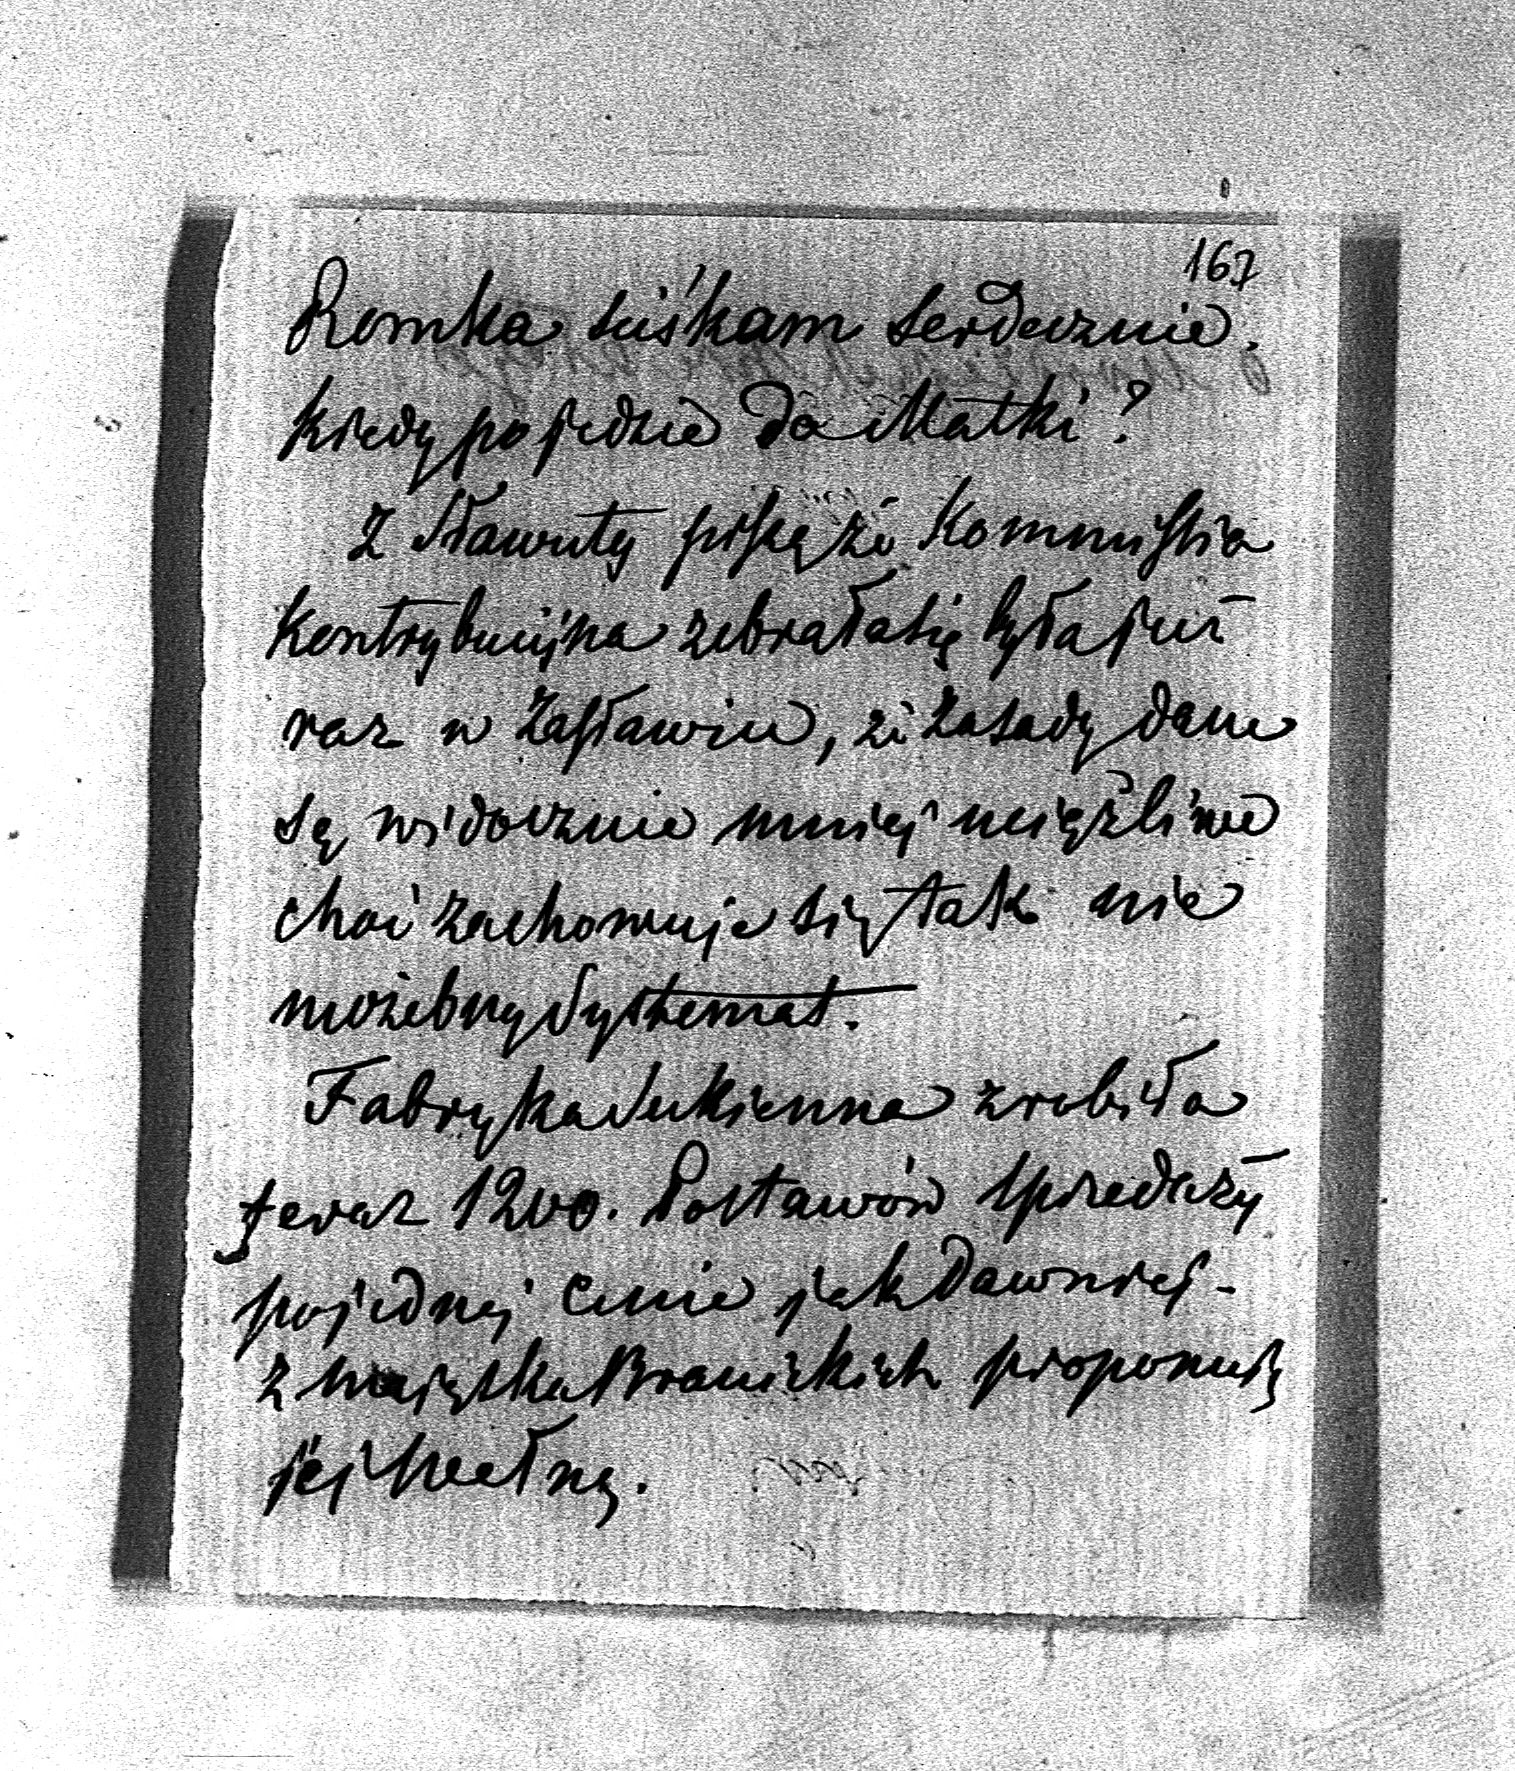 167
Romka sciśkam serdecznie.
Kiedy pojedzie do Matki?
Z Sławuty piszą że Kommissia
Kontrybucijna zebrała się była już
raz w Zasławiu, że zasady dane
są widocznie mniej uciążliwe
choć zachowuje się tak nie
możebny Systemat.
Fabryka Sukienna zrobiła
teraz 1200. Postawów sprzedaży
po jednej cenie jak dawniej -
z majątku Branickich proponują
jej wełnę.